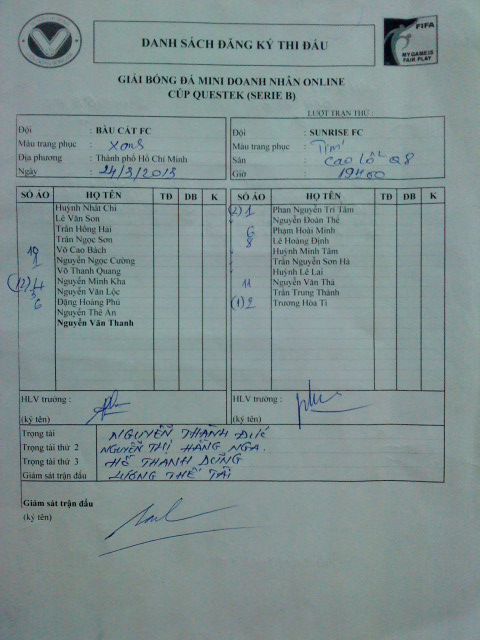 DANH SÁCH ĐĂNG KÝ THI ĐẤU
FIFA
MY GAME IS
FAIR PLAY
GIẢI BÓNG ĐÁ MINI DOANH NHÂN ONLINE
CÚP QUESTEK (SERIE B)
LƯỢT TRẬN THỨ :
Đội : BÀU CÁT FC
Màu trang phục : xanh
Địa phương : Thành phố Hồ Chí Minh
Ngày : 24/3/2013
Đội : SUNRISE FC
Màu trang phục :
Sân :
Giờ : 19H00
SỐ ÁO HỌ TÊN TĐ ĐB K
Huỳnh Nhất Chi
Lê Văn Sơn
Trần Hồng Hải
Trần Ngọc Sơn
10 Võ Cao Bách
1 Nguyễn Ngọc Cường
Võ Thanh Quang
(12) 4 Nguyễn Minh Kha
3 Nguyễn Văn Lộc
6 Đặng Hoàng Phú
Nguyễn Thế An
Nguyễn Văn Thanh
SỐ ÁO HỌ TÊN TĐ ĐB K
(2) 1 Phan Nguyễn Trí Tâm
Nguyễn Đoàn Thế
6 Phạm Hoài Minh
8 Lê Hoàng Định
Huỳnh Minh Tâm
Trần Nguyễn Sơn Hà
Huỳnh Lê Lai
11 Nguyễn Văn Thả
Trần Trung Thành
(1) 2 Trương Hòa Ti
HLV trưởng :
(ký tên)
HLV trưởng :
(ký tên)
Trọng tài NGUYỄN THÀNH ĐỨC
Trọng tài thứ 2 NGUYỄN THỊ HẰNG NGA.
Trọng tài thứ 3 HỒ THANH DŨNG
Giám sát trận đấu LƯƠNG THẾ TÀI
Giám sát trận đấu
(ký tên)